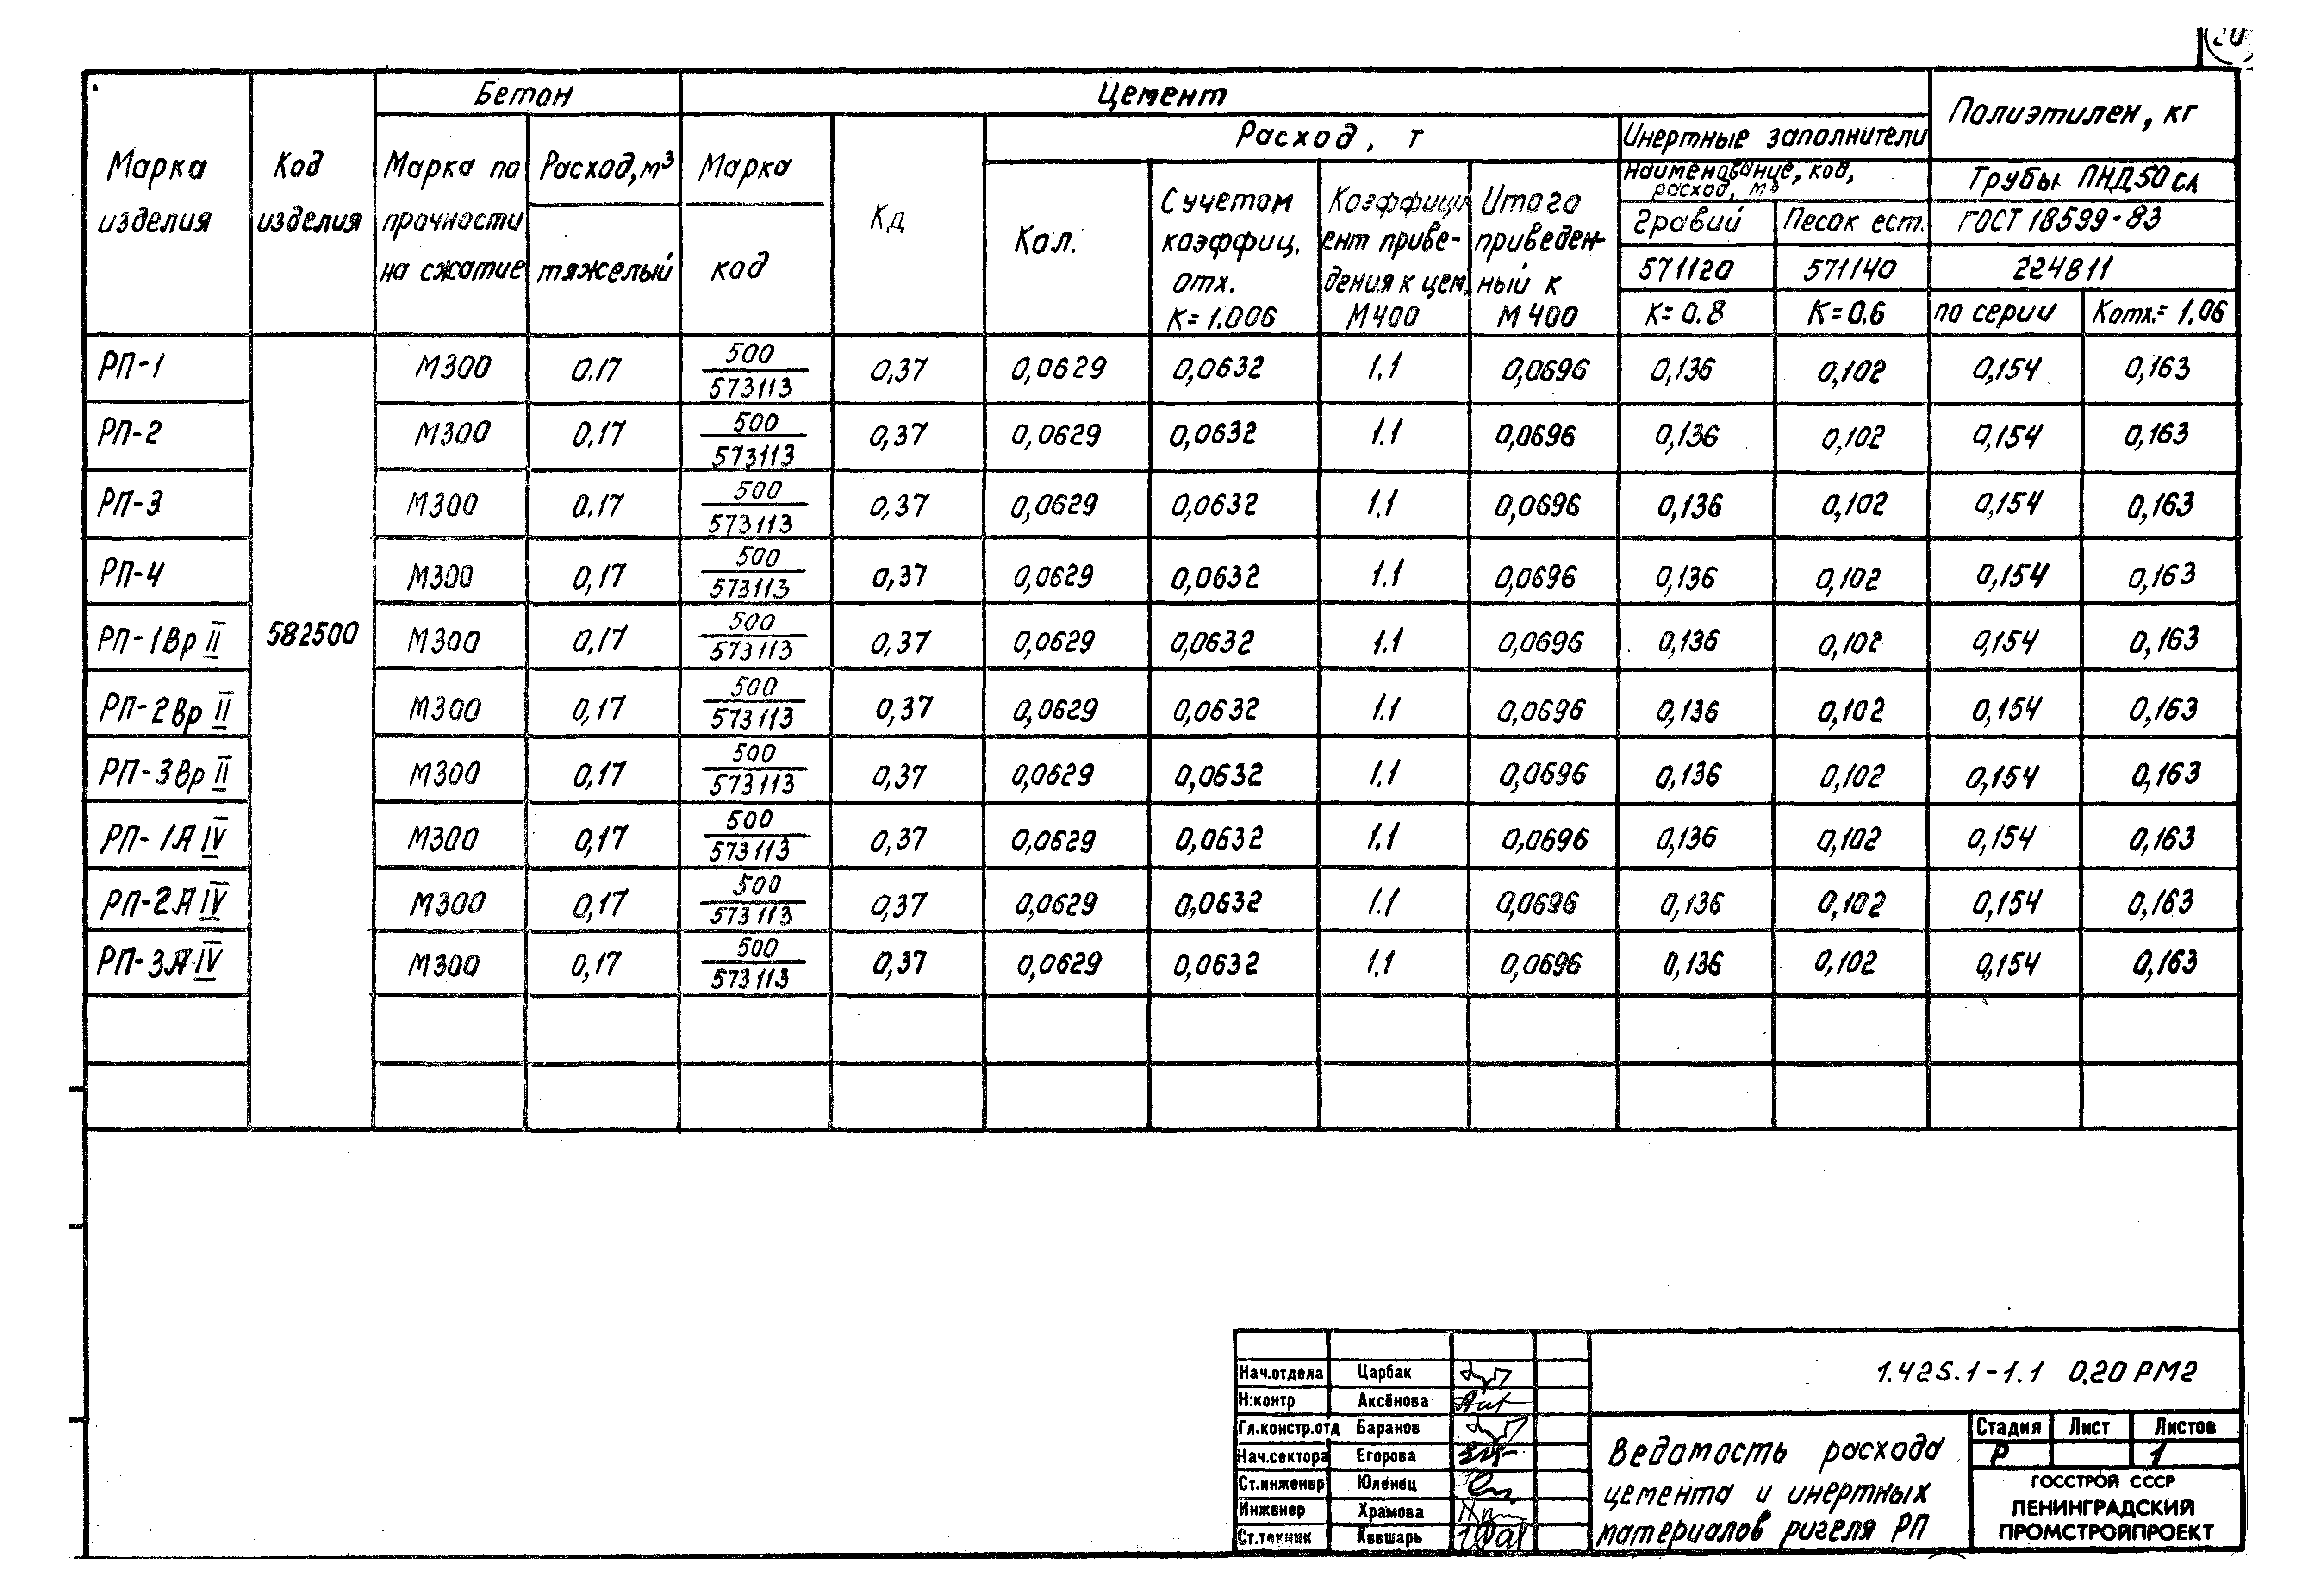 20
Бетон Цемент Полиэтилен, кг
Марка изделия Код изделия Марка по прочности на сжатие Расход, м³ тяжелый Марка код Кд Расход, т Инертные заполнители
Кол. С учетом коэффиц. отх. К=1.006 Коэффициент приведения к цем. М400 Итого приведенный к М400 Наименование, код, расход, м³ Трубы ПНД50сл
Гравий Песок ест. ГОСТ 18599-83
571120 571140 224811
К=0.8 К=0.6 по серии Kотх.=1.06
РП-1 М300 0.17 500/573113 0,37 0,0629 0,0632 1.1 0,0696 0,136 0,102 0,154 0,163
РП-2 М300 0.17 500/573113 0,37 0,0629 0,0632 1.1 0,0696 0,136 0,102 0,154 0,163
РП-3 М300 0.17 500/573113 0,37 0,0629 0,0632 1.1 0,0696 0,136 0,102 0,154 0,163
РП-4 М300 0,17 500/573113 0,37 0,0629 0,0632 1.1 0,0696 0,136 0,102 0,154 0,163
РП-1Вр II 582500 М300 0,17 500/573113 0,37 0,0629 0,0632 1.1 0,0696 0,136 0,102 0,154 0,163
РП-2Вр II М300 0,17 500/573113 0,37 0,0629 0,0632 1.1 0,0696 0,136 0,102 0,154 0,163
РП-3Вр II М300 0,17 500/573113 0,37 0,0629 0,0632 1.1 0,0696 0,136 0,102 0,154 0,163
РП-1А IV М300 0,17 500/573113 0,37 0,0629 0,0632 1.1 0,0696 0,136 0,102 0,154 0,163
РП-2А IV М300 0,17 500/573113 0,37 0,0629 0,0632 1.1 0,0696 0,136 0,102 0,154 0,163
РП-3А IV М300 0,17 500/573113 0,37 0,0629 0,0632 1.1 0,0696 0,136 0,102 0,154 0,163
Нач.отдела Царбак
Н:контр Аксёнова
Гл.констр.отд Баранов
Нач.сектора Егорова
Ст.инженер Юленец
Инженер Храмова
Ст.техник Квашарь
1.425.1-1.1 0.20 РМ2
Ведомость расхода
цемента и инертных
материалов ригеля РП
Стадия Лист Листов
Р 1
ГОССТРОЙ СССР
ЛЕНИНГРАДСКИЙ
ПРОМСТРОЙПРОЕКТ